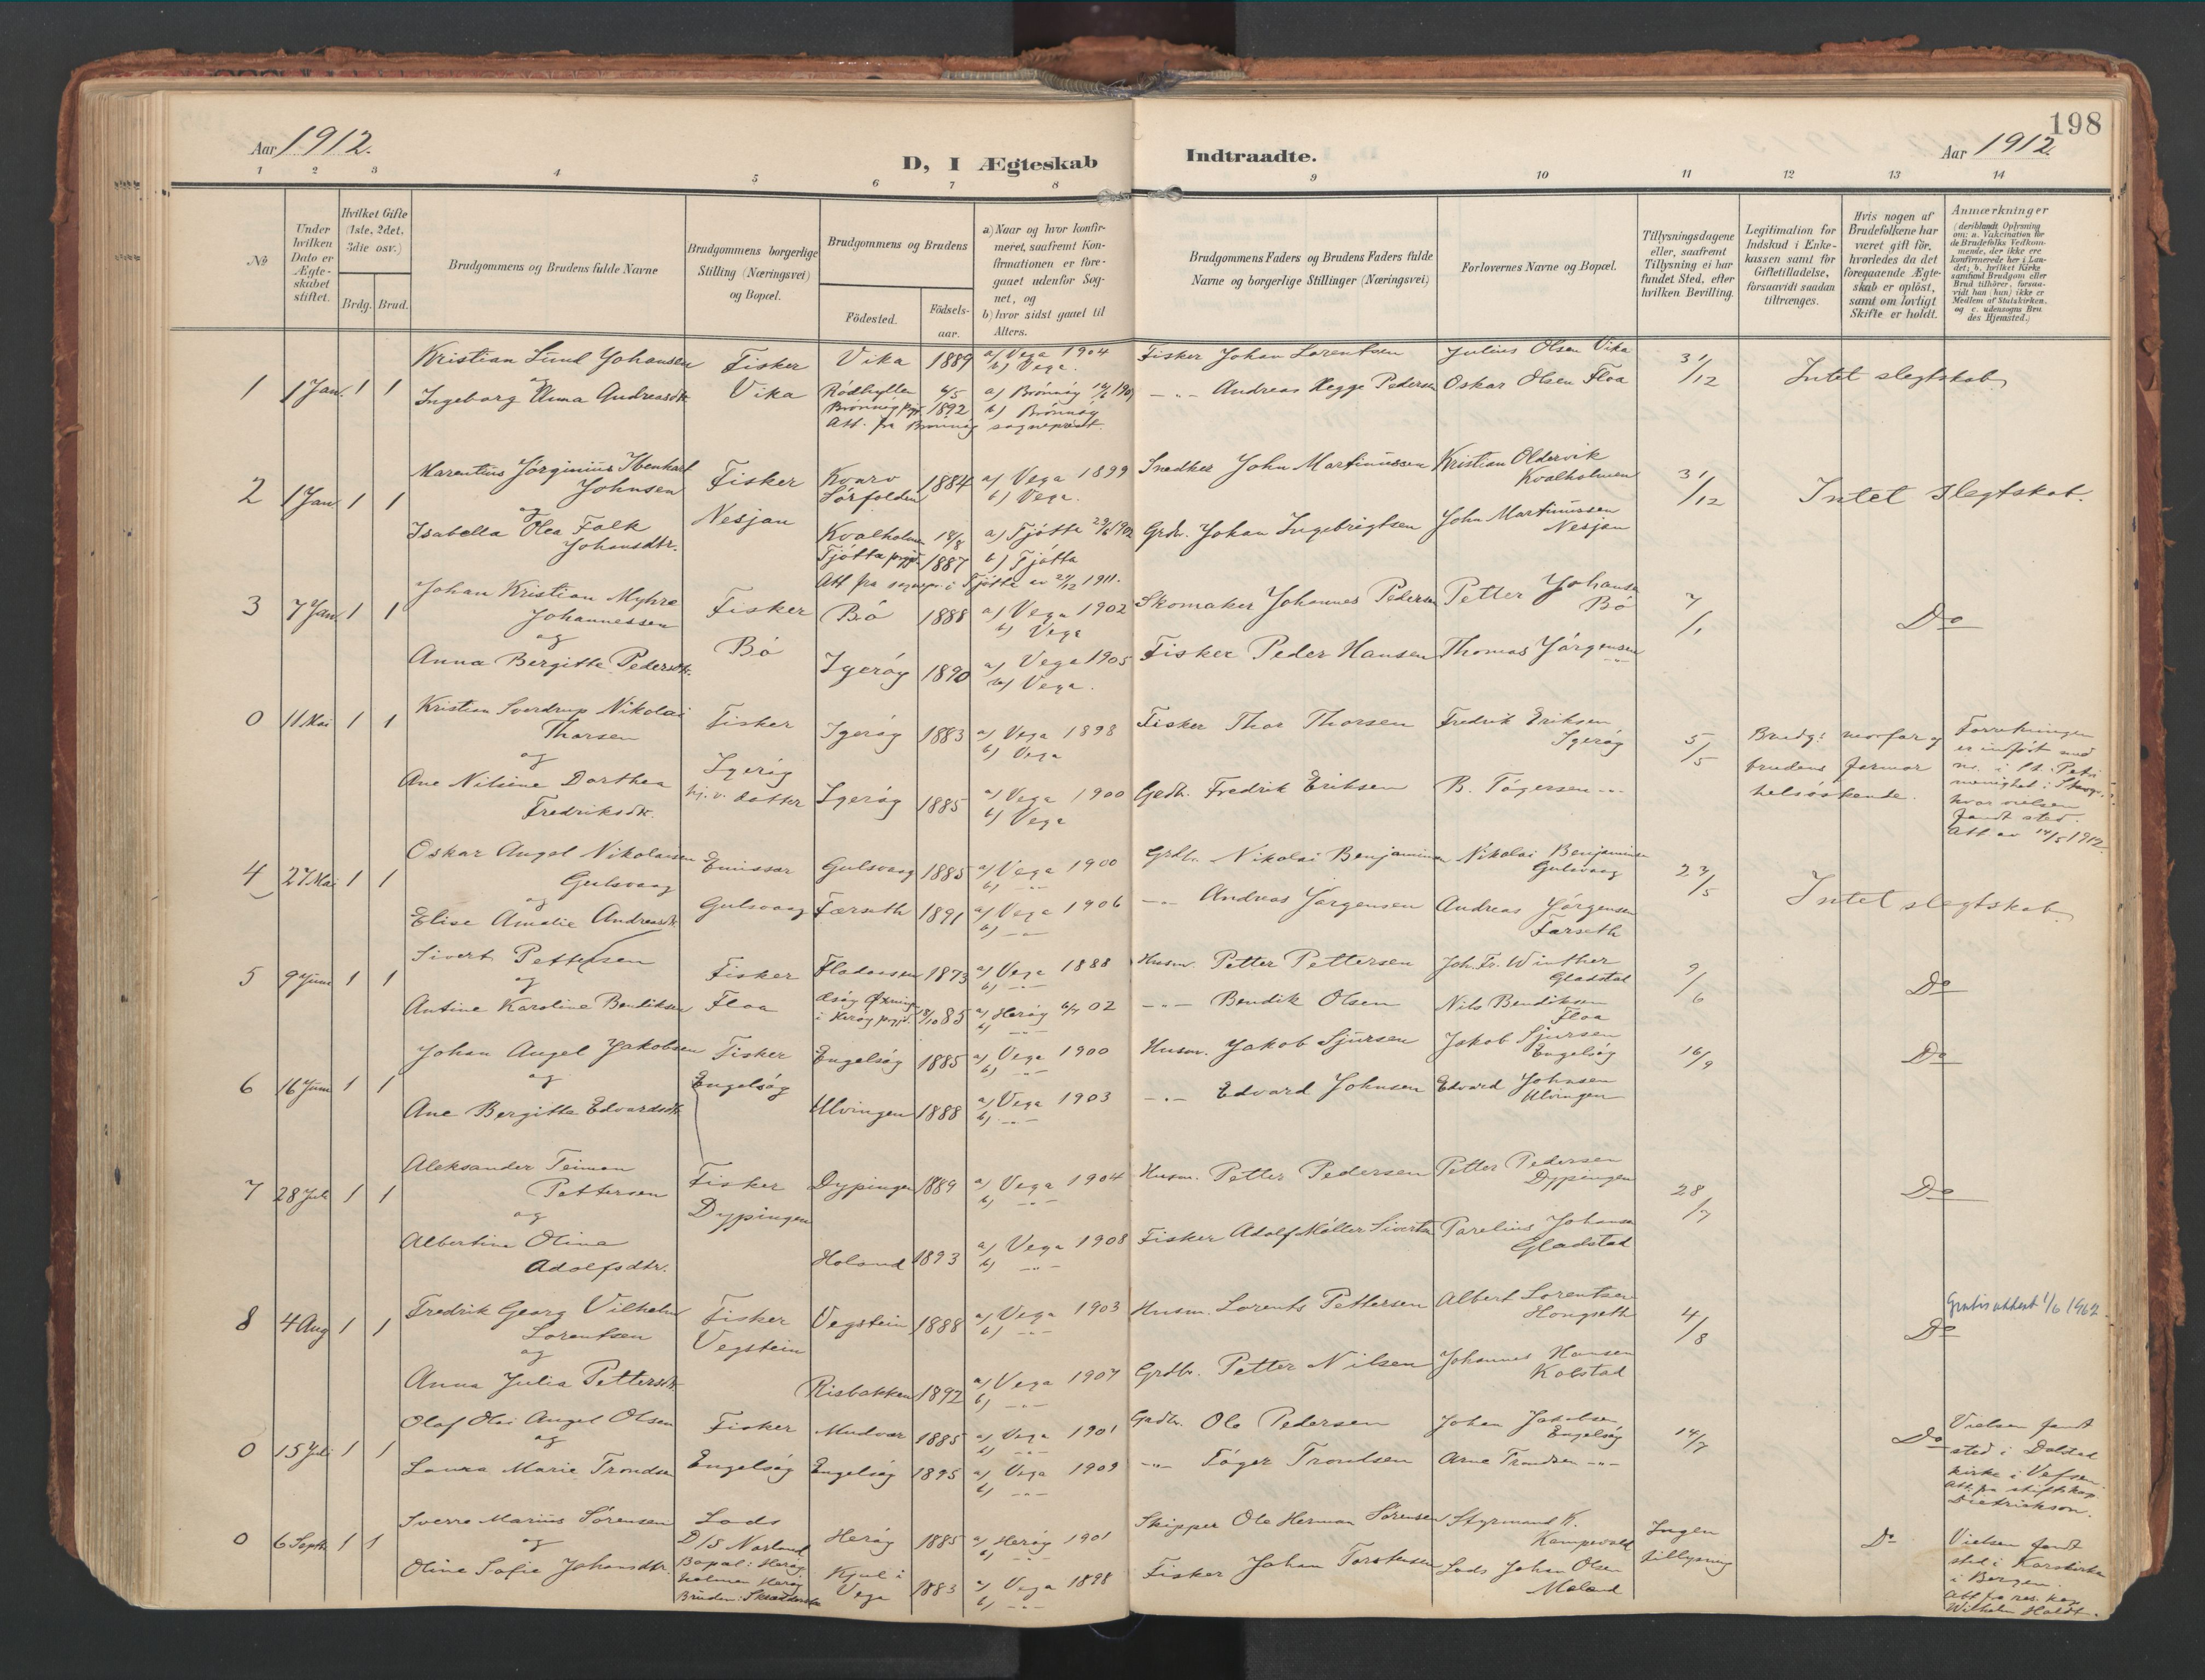 198
Aar 1912.
D, I Ægteskab Indtraadte.
Aar 1912.
1 2 3 4 5 6 7 8 9 10 11 12 13 14
№
Under hvilken Dato er Ægteskabet stiftet.
Hvilket Gifte (1ste, 2det, 3die osv.)
Brdg. Brud.
Brudgommens og Brudens fulde Navne
Brudgommens borgerlige Stilling (Næringsvei) og Bopæl.
Brudgommens og Brudens
Födested.
Födselsaar.
a) Naar og hvor konfirmeret, saafremt Konfirmationen er foregaaet udenfor Sognet, og
b) hvor sidst gaaet til Alters.
Brudgommens Faders og Brudens Faders fulde Navne og borgerlige Stillinger (Næringsvei)
Forlovernes Navne og Bopæl.
Tillysningsdagene eller, saafremt Tillysning ei har fundet Sted, efter hvilken Bevilling.
Legitimation for Indskud i Enkekassen samt for Giftetilladelse, forsaavidt saadan tiltrænges.
Hvis nogen af Brudefolkene har været gift för, hvorledes da det foregaaende Ægteskab er oplöst, samt om lovligt Skifte er holdt.
Anmærkninger (deriblandt Oplysning om: a. Vakcination for de Brudefolks Vedkommende, der ikke ere konfirmerede her i Landet; b. hvilket Kirkesamfund Brudgom eller Brud tilhörer, forsaavidt han (hun) ikke er Medlem af Statskirken, og c. udensogns Brudes Hjemsted.)
1 1 Jan. 1 1
Kristian Lund Johansen
og
Ingeborg Anna Andreasdtr.
Fisker
Vika
Vika 1889 a) Vega 1904
b) Vega.
Rödhyllen 4/5 a) Brönnöy 1907
Brönnöy prgj. 1892 b) Brönnöy
Att. fra Brönnöy sogneprest.
Fisker Johan Lorentsen
-"- Andreas Hegge Pedersen
Julius Olsen Vika
Oskar Olsen Floa
31/12
Intet slegtskab
2 1 Jan 1 1
Marentius Jörginius Ibenhart
Johnsen
og
Isabella Olea Falk
Johansdtr.
Fisker
Nesjan
Kvarv
Sörfolden 1884 a) Vega 1899
b) Vega.
Kvalholmen 18/8 a) Tjötta 1902
Tjötta prgj. 1887 b) Tjötta
Att fra sognepr. i Tjötta av 29/12 1911.
Snedker John Martinussen
Grdbr. Johan Ingebrigtsen
Kristian Oldervik
Kvalholmen
John Martinussen
Nesjan
31/12
Intet slegtskab.
3 7 Jan. 1 1
Johan Kristian Myhre
Johannessen
og
Anna Bergitte Pedersdtr.
Fisker
Bö
Bö 1888 a) Vega 1902
b) Vega
Igeröy 1890 a) Vega 1905
b) Vega.
Skomaker Johannes Pedersen
Fisker Peder Hansen
Petter Johansen
Bö
Thomas Jörgensen
-"-
7/1
Do
0 11 Mai 1 1
Kristian Sverdrup Nikolai
Thorsen
og
Ane Nilsine Dorthea
Fredriksdtr.
Fisker
Igeröy
hj.v. datter
Igeröy 1883 a) Vega 1898
b) Vega
Igeröy 1885 a) Vega 1900
b) Vega
Fisker Thor Thorsen
Grdbr. Fredrik Eriksen
Fredrik Eriksen
Igeröy
B. Tögersen -"-
5/5
Brudg: morfar og
brudens farmor
helsöskende.
Forretningen
er indfört med
no. i St. Petri
menighet i
hvor vielsen
fandt sted.
Att av 14/5 1912.
4 27 Mai 1 1
Oskar Angel Nikolaisen
Gulsvaag
og
Elise Amalie Andreasdtr.
Emissær
Gulsvaag
Gulsvaag 1885 a) Vega 1900
b) -"-
Færseth 1891 a) Vega 1906
b) -"-
Grdbr. Nikolai Benjaminsen
-"- Andreas Jörgensen
Nikolai Benjaminsen
Gulsvaag
Andreas Jörgensen
Færseth
27/5
Intet slegtskab
5 9 Juni 1 1
Sivert Pettersen
og
Antine Karoline Bendiksen
Fisker
Floa
1873 a) Vega 1888
b) -"-
i Heröy prgj. 18/10 85 a) Heröy 02
b) -"-
Husm. Petter Pettersen
-"- Bendik Olsen
Joh. Fr. Winther
Gladstad
Nils Bendiksen
Floa
9/6
Do
6 16 Juni 1 1
Johan Angel Jakobsen
og
Ane Bergitte Edvardsdtr.
Fisker
Engelsöy
Engelsöy 1885 a) Vega 1900
b) -"-
Ulvingen 1888 a) Vega 1903
b) -"-
Husm. Jakob Sjursen
-"- Edvard Johnsen
Jakob Sjursen
Engelsöy
Edvard Johnsen
Ulvingen
16/9
Do
7 28 Juli 1 1
Aleksander Teiman
Pettersen
og
Albertine Olina
Adolfsdtr.
Fisker
Dypingen
Dypingen 1889 a) Vega 1904
b) -"-
Holand 1893 a) Vega 1908
b) -"-
Husm. Petter Pedersen
Fisker Adolf Möller Sivertsen
Petter Pedersen
Dypingen
Parelius Johansen
Gladstad
28/7
Do
8 4 Aug 1 1
Fredrik Georg Vilhelm
Lorentsen
og
Anna Julia Pettersdtr.
Fisker
Vegstein
Vegstein 1888 a) Vega 1903
b) -"-
Risbakken 1892 a) Vega 1907
b) -"-
Husm. Lorents Pettersen
Grdbr. Petter Nilsen
Albert Lorentsen
Hongseth
Johannes Hansen
Kolstad
4/8
Do
Gratis attest 1/6 1962.
0 15 Juli 1 1
Olaf Olai Angel Olsen
og
Laura Marie Trondsen
Fisker
Engelsöy
Mudvær 1885 a) Vega 1901
b) -"-
Engelsöy 1895 a) Vega 1909
b) -"-
Grdbr. Ole Pedersen
-"- Töger Trondsen
Johan Jakobsen
Engelsöy
Arne Trondsen -"-
14/7
Do
Vielsen fandt
sted i Dolstad
kirke i Vefsen
Att fra stiftskap.
Dietrichson.
0 6 Septb. 1 1
Sverre Marius Sörensen
og
Oline Sofie Johansdtr.
Lods
D/S Norland
Bopæl: Heröy
holmen Heröy
Bruden:
Heröy 1885 a) Heröy 1901
b) -"-
Kjul i
Vega 1883 a) Vega 1898
b) -"-
Skipper Ole Herman Sörensen
Fisker Johan Torstensen
Styrmand K.
Kempevold
Lods Johan Olsen
Moland
Ingen
tillysning
Do
Vielsen fandt
sted i Korskirken
i Bergen.
Att fra res. kap
Wilhelm Holdt.